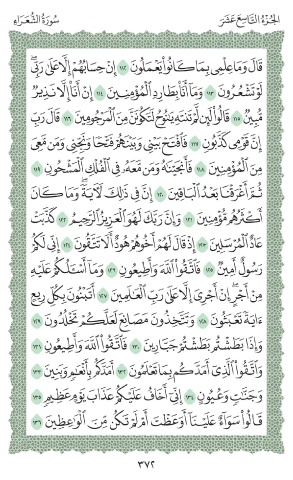 الجزء التاسع عشر
سورة الشعراء
قَالَ وَمَا عِلْمِى بِمَا كَانُوا۟ يَعْمَلُونَ ١١٢ إِنْ حِسَابُهُمْ إِلَّا عَلَىٰ رَبِّى
لَوْ تَشْعُرُونَ ١١٣ وَمَآ أَنَا۠ بِطَارِدِ ٱلْمُؤْمِنِينَ ١١٤ إِنْ أَنَا۠ إِلَّا نَذِيرٌ
مُّبِينٌ ١١٥ قَالُوا۟ لَئِن لَّمْ تَنتَهِ يَـٰنُوحُ لَتَكُونَنَّ مِنَ ٱلْمَرْجُومِينَ ١١٦ قَالَ رَبِّ
إِنَّ قَوْمِى كَذَّبُونِ ١١٧ فَٱفْتَحْ بَيْنِى وَبَيْنَهُمْ فَتْحًا وَنَجِّنِى وَمَن مَّعِىَ
مِنَ ٱلْمُؤْمِنِينَ ١١٨ فَأَنجَيْنَـٰهُ وَمَن مَّعَهُۥ فِى ٱلْفُلْكِ ٱلْمَشْحُونِ ١١٩
ثُمَّ أَغْرَقْنَا بَعْدُ ٱلْبَاقِينَ ١٢٠ إِنَّ فِى ذَٰلِكَ لَـَٔايَةً وَمَا كَانَ
أَكْثَرُهُم مُّؤْمِنِينَ ١٢١ وَإِنَّ رَبَّكَ لَهُوَ ٱلْعَزِيزُ ٱلرَّحِيمُ ١٢٢ كَذَّبَتْ
عَادٌ ٱلْمُرْسَلِينَ ١٢٣ إِذْ قَالَ لَهُمْ أَخُوهُمْ هُودٌ أَلَا تَتَّقُونَ ١٢٤ إِنِّى لَكُمْ
رَسُولٌ أَمِينٌ ١٢٥ فَٱتَّقُوا۟ ٱللَّهَ وَأَطِيعُونِ ١٢٦ وَمَآ أَسْـَٔلُكُمْ عَلَيْهِ
مِنْ أَجْرٍ إِنْ أَجْرِىَ إِلَّا عَلَىٰ رَبِّ ٱلْعَـٰلَمِينَ ١٢٧ أَتَبْنُونَ بِكُلِّ رِيعٍ
ءَايَةً تَعْبَثُونَ ١٢٨ وَتَتَّخِذُونَ مَصَانِعَ لَعَلَّكُمْ تَخْلُدُونَ ١٢٩
وَإِذَا بَطَشْتُم بَطَشْتُمْ جَبَّارِينَ ١٣٠ فَٱتَّقُوا۟ ٱللَّهَ وَأَطِيعُونِ ١٣١
وَٱتَّقُوا۟ ٱلَّذِىٓ أَمَدَّكُم بِمَا تَعْلَمُونَ ١٣٢ أَمَدَّكُم بِأَنْعَـٰمٍ وَبَنِينَ ١٣٣
وَجَنَّـٰتٍ وَعُيُونٍ ١٣٤ إِنِّىٓ أَخَافُ عَلَيْكُمْ عَذَابَ يَوْمٍ عَظِيمٍ ١٣٥
قَالُوا۟ سَوَآءٌ عَلَيْنَآ أَوَعَظْتَ أَمْ لَمْ تَكُن مِّنَ ٱلْوَٰعِظِينَ ١٣٦
٣٧٢